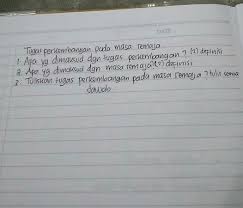 Tugas perkembangan pada masa remaja
1. Apa yg dimaksud dgn tugas perkembangan ? (2) definisi
2. Apa yg dimaksud dgn masa remaja ? (2) definisi
3. Tuliskan tugas perkembangan pada masa remaja ? tulis semua